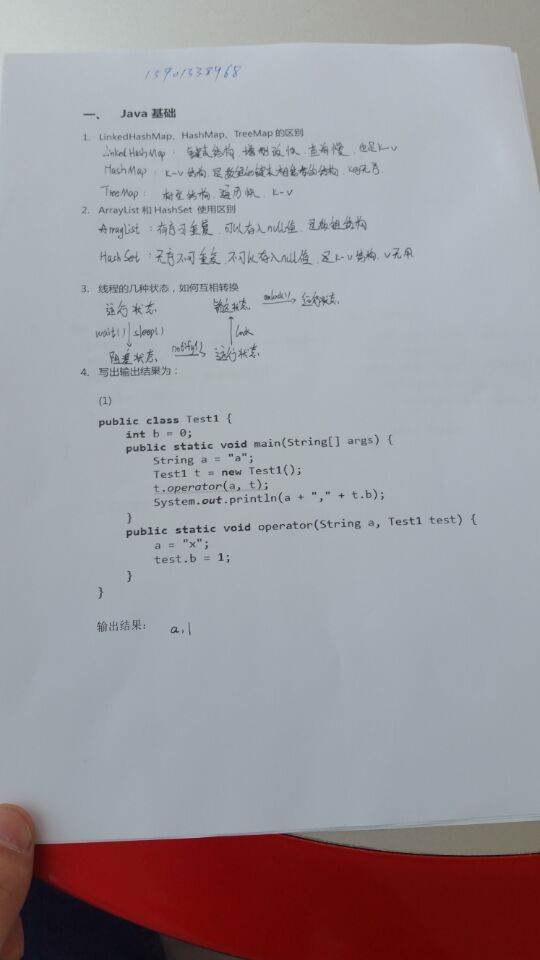 15901338968
一、 Java 基础
1. LinkedHashMap、HashMap、TreeMap 的区别
LinkedHashMap: 链表结构,增删改快,查询慢,也是K-V
HashMap: K-V结构,是数组和链表相结合的结构,key无序
TreeMap: 树型结构,遍历快,K-V
2. ArrayList 和 HashSet 使用区别
ArrayList:有序可重复,可以存入null值,是数组结构
HashSet:无序不可重复,不可以存入null值,是K-V结构,V无用
3. 线程的几种状态,如何互相转换
运行状态 锁定状态 unlock() 运行状态
wait() sleep() lock
阻塞状态 notify() 运行状态
4. 写出输出结果为:
(1)
public class Test1 {
int b = 0;
public static void main(String[] args) {
String a = "a";
Test1 t = new Test1();
t.operator(a, t);
System.out.println(a + "," + t.b);
}
public static void operator(String a, Test1 test) {
a = "x";
test.b = 1;
}
}
输出结果: a,1